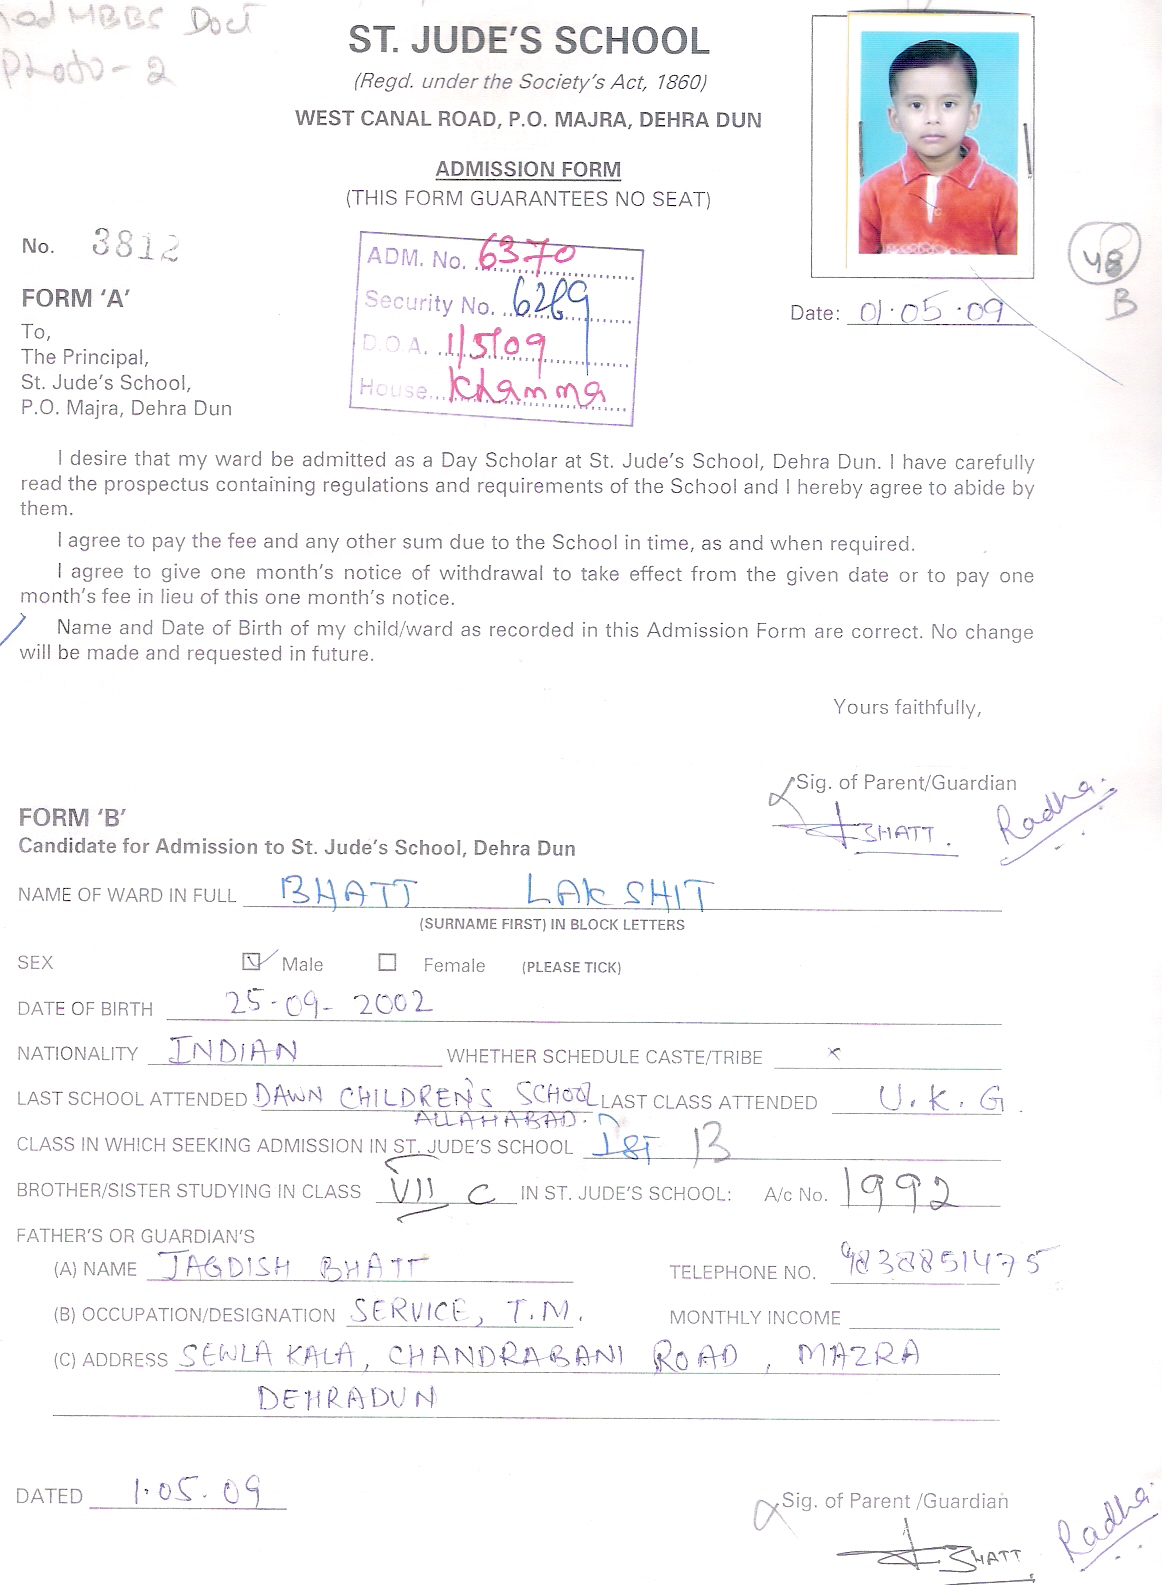 MBBS Doct
Photo - 2
ST. JUDE'S SCHOOL
(Regd. under the Society's Act, 1860)
WEST CANAL ROAD, P.O. MAJRA, DEHRA DUN
ADMISSION FORM
(THIS FORM GUARANTEES NO SEAT)
No. 3812
ADM. No. 6370
Security No. 6289
D.O.A. 1/5/09
House... Khamma
48
B
Date: 01.05.09
FORM 'A'
To,
The Principal,
St. Jude's School,
P.O. Majra, Dehra Dun
I desire that my ward be admitted as a Day Scholar at St. Jude's School, Dehra Dun. I have carefully
read the prospectus containing regulations and requirements of the School and I hereby agree to abide by
them.
I agree to pay the fee and any other sum due to the School in time, as and when required.
I agree to give one month's notice of withdrawal to take effect from the given date or to pay one
month's fee in lieu of this one month's notice.
Name and Date of Birth of my child/ward as recorded in this Admission Form are correct. No change
will be made and requested in future.
Yours faithfully,
Sig. of Parent/Guardian
BHATT. Radha
FORM 'B'
Candidate for Admission to St. Jude's School, Dehra Dun
NAME OF WARD IN FULL BHATT LAKSHIT
(SURNAME FIRST) IN BLOCK LETTERS
SEX Male Female (PLEASE TICK)
DATE OF BIRTH 25-09-2002
NATIONALITY INDIAN WHETHER SCHEDULE CASTE/TRIBE x
LAST SCHOOL ATTENDED DAWN CHILDREN'S SCHOOL LAST CLASS ATTENDED U.K.G.
ALLAHABAD.
CLASS IN WHICH SEEKING ADMISSION IN ST. JUDE'S SCHOOL 1ST B
BROTHER/SISTER STUDYING IN CLASS VII C IN ST. JUDE'S SCHOOL: A/c No. 1992
FATHER'S OR GUARDIAN'S
(A) NAME JAGDISH BHATT TELEPHONE NO. 9838851475
(B) OCCUPATION/DESIGNATION SERVICE, T.M. MONTHLY INCOME
(C) ADDRESS SEWLA KALA, CHANDRABANI ROAD, MAZRA
DEHRADUN
DATED 1.05.09
Sig. of Parent /Guardian
BHATT Radha